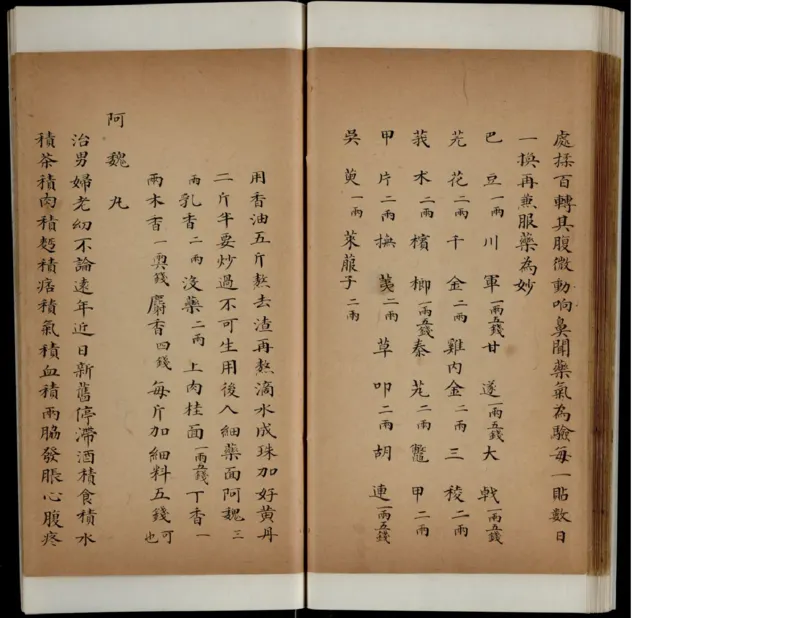 處揉百轉其腹微動响鼻聞藥氣為驗每一貼數日
一換再兼服藥為妙
巴豆一兩川軍一兩五錢甘遂一兩五錢大戟一兩五錢
芫花二兩千金二兩雞内金二兩三稜二兩
莪木二兩檳榔一兩五錢秦艽二兩鼈甲二兩
甲片二兩撫荑二兩草叩二兩胡連一兩五錢
吳萸一兩萊菔子二兩
用香油五斤熬去渣再熬滴水成珠加好黄丹
二斤半要炒過不可生用後入細藥面阿魏三
兩乳香二兩没藥二兩上肉桂面一兩五錢丁香一
兩木香一兩錢麝香四錢每斤加細料五錢可也
阿魏丸
治男婦老幼不論遠年近日新舊停滯酒積食積水
積茶積肉積麪積痞積氣積血積兩脇發脹心腹疼